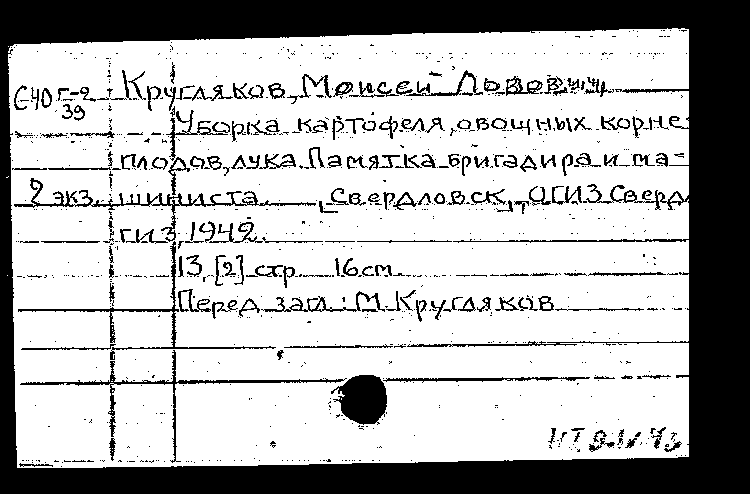 Г-2
С40 39
Кругляков, Моисей Львович,
Уборка картофеля, овощных корне
плодов, лука. Памятка бригадира и ма-
2 экз. шиниста. [Свердловск], ОГИЗ Сверд
гиз, 1942.
13, [2] стр 16см.
Перед загл.: М. Кругляков